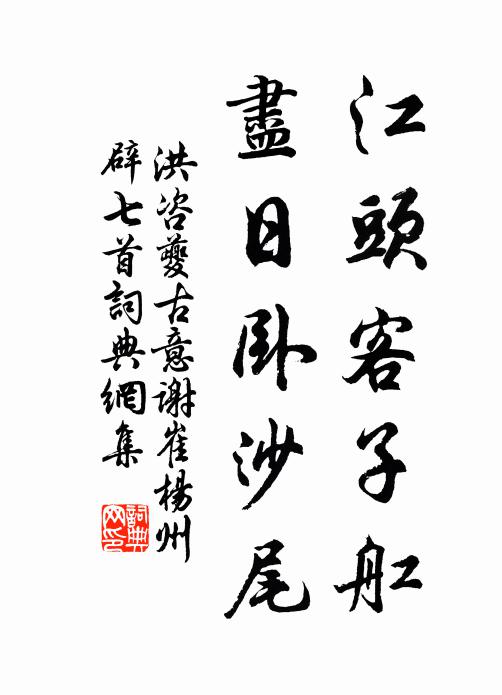 江頭客子舡
盡日卧沙尾
洪咨夔古意謝崔楊州
辟七首詞典網集
詞典網印